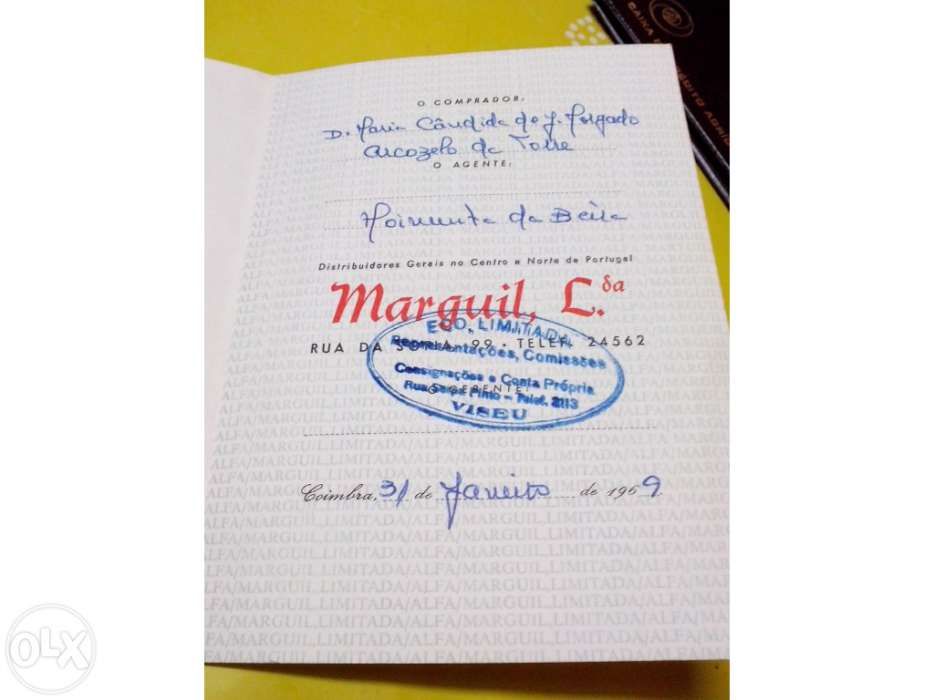 CAIXA
CRÉDITO AGRÍC
O COMPRADOR:
D. Maria Cândida de J. Morgado
Arcozelo da Torre
O AGENTE:
Moimenta da Beira
Distribuidores Gerais no Centro e Norte de Portugal
Marguil, L.da
RUA DA SOFIA, 99 - TELEF. 24562
ECO, LIMITADA
Representações, Comissões
Consignações e Conta Própria
O GERENTE:
Rua Serpa Pinto - Telef. 2113
VISEU
Coimbra, 31 de Janeiro de 1969
ALFA/MARGUIL, LIMITADA/ALFA/MARGUIL, LIMITADA/ALFA/MARGUIL
OLX